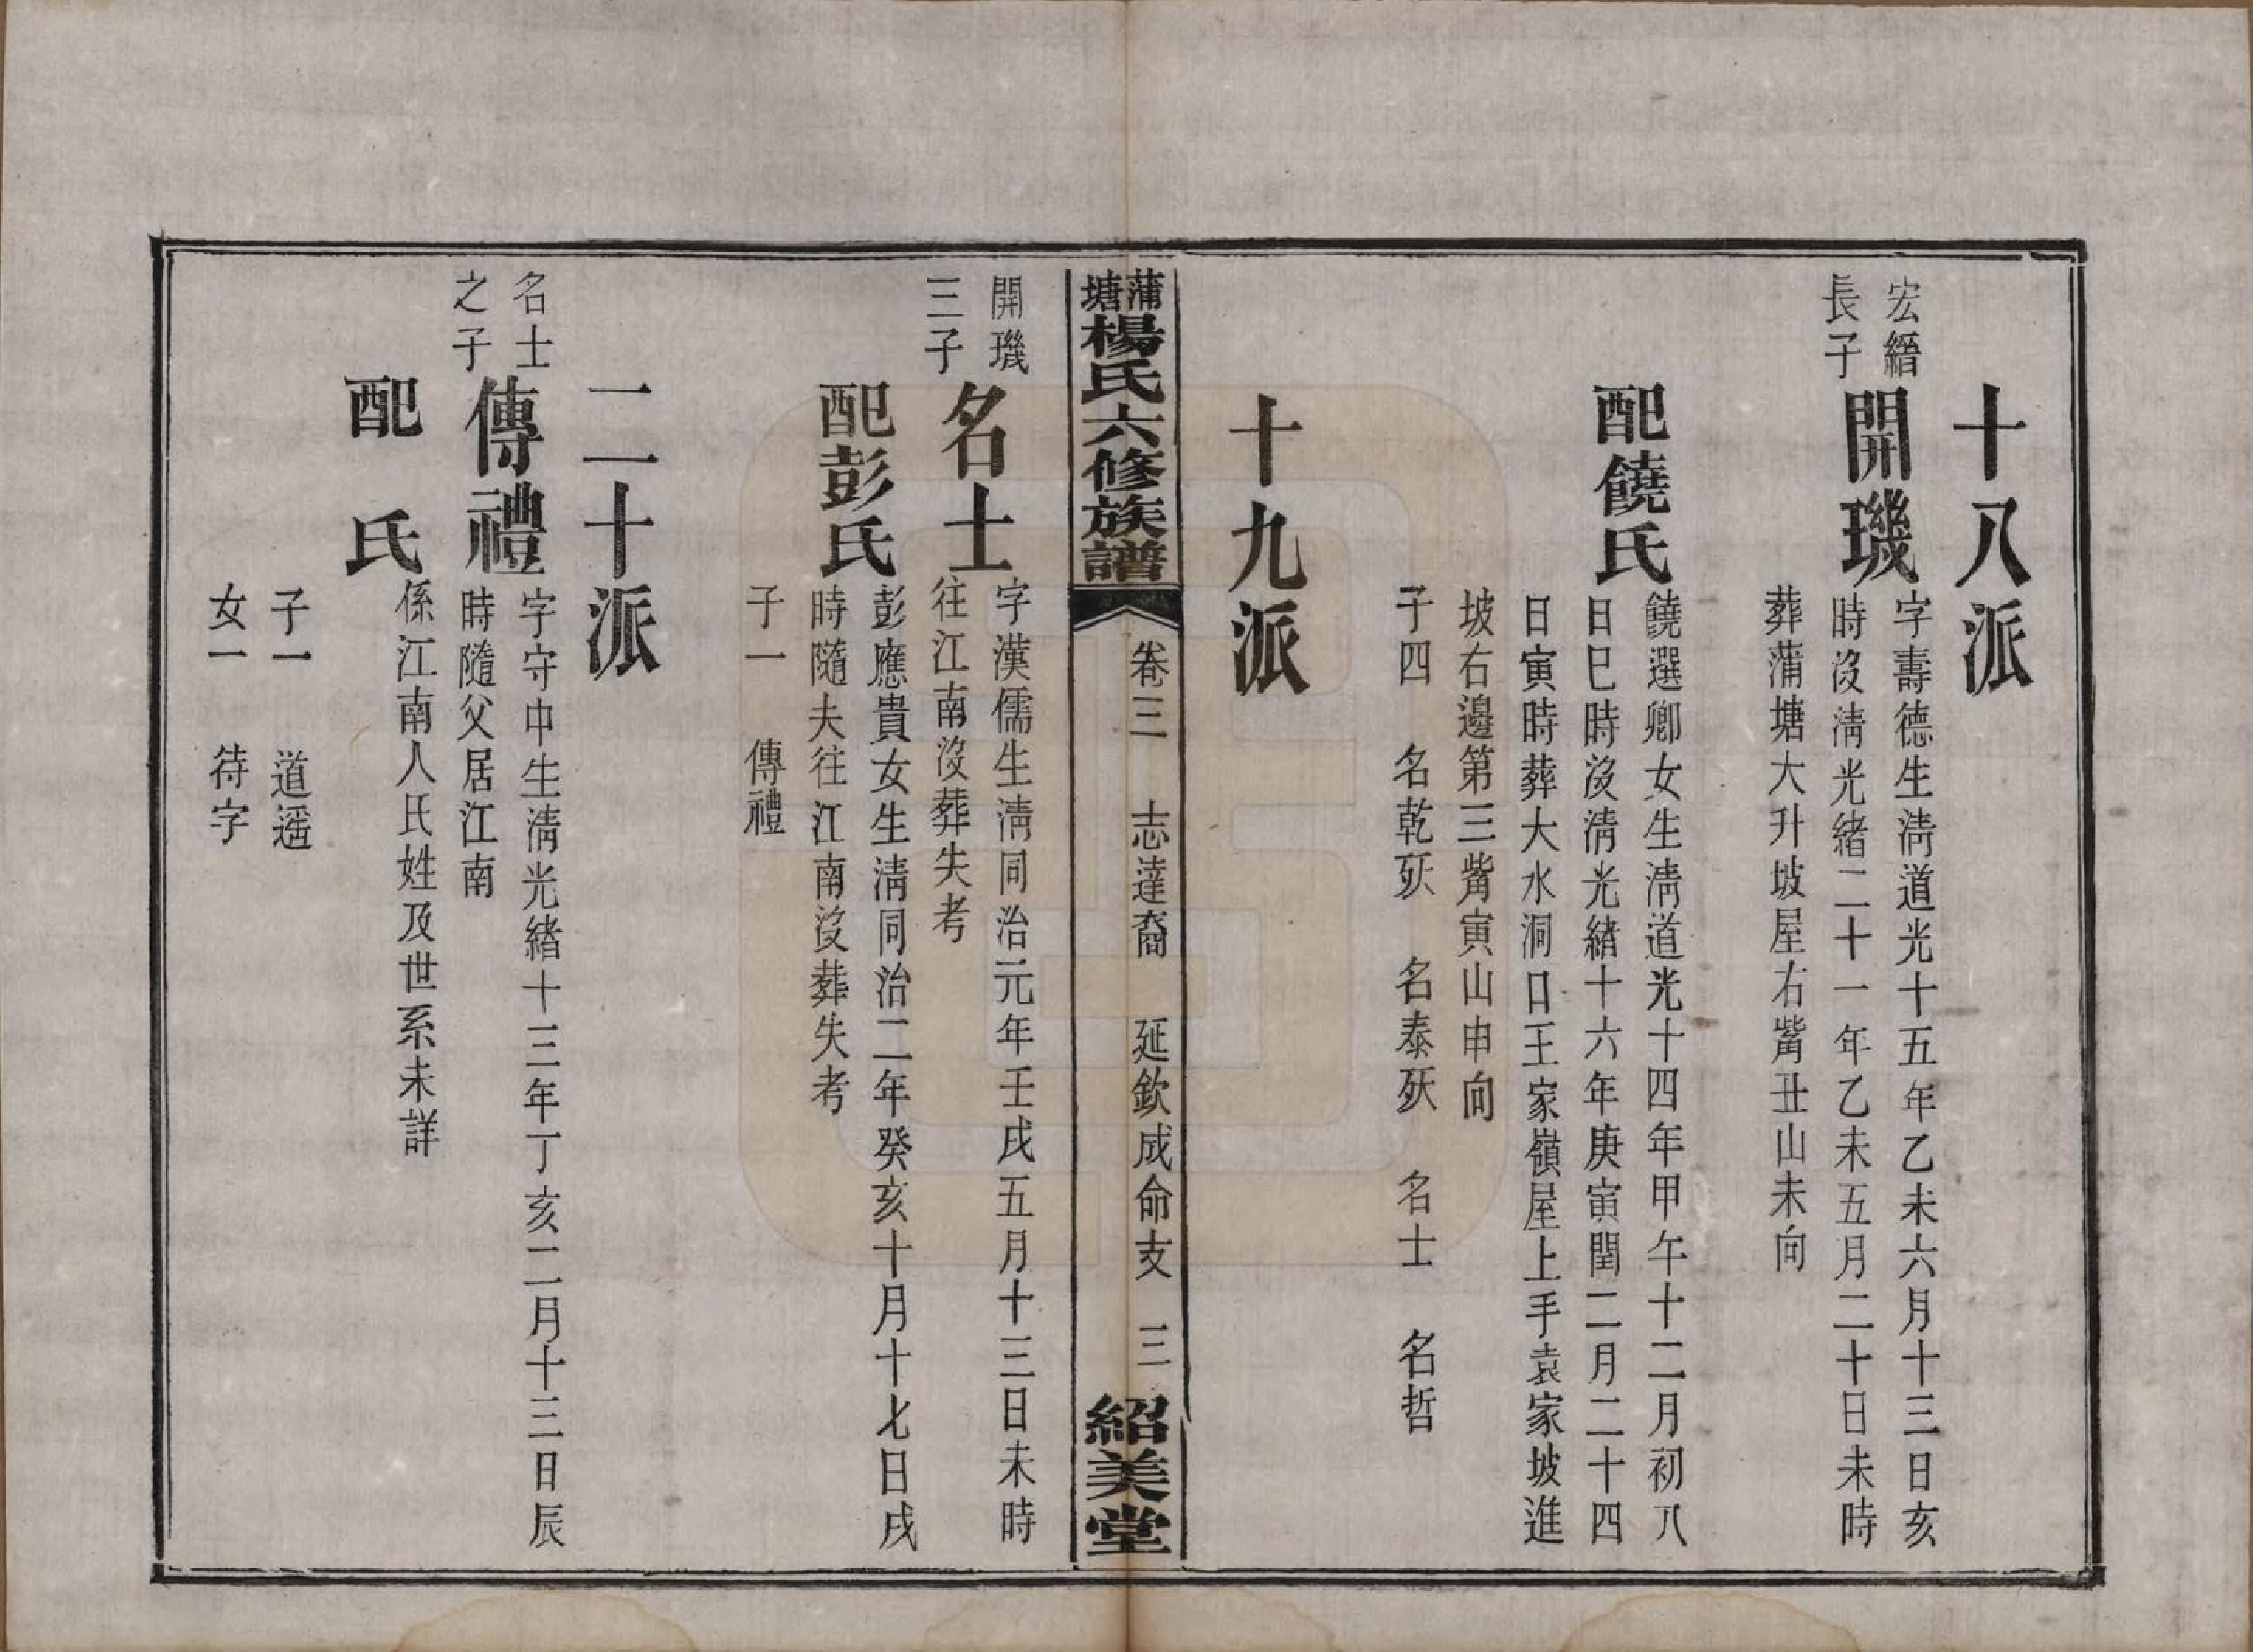 十八派
宏縉
長子
開璣
字壽德生淸道光十五年乙未六月十三日亥
時沒淸光緒二十一年乙未五月二十日未時
葬蒲塘大升坡屋右觜丑山未向
配饒氏
饒選卿女生淸道光十四年甲午十二月初八
日巳時沒淸光緒十六年庚寅閏二月二十四
日寅時葬大水洞口王家嶺屋上手袁家坡進
坡右邉第三觜寅山申向
子四　名乾殀　名泰殀　名士　名哲
十九派
蒲塘楊氏六修族譜
卷三　志達裔　延欽成命支　三
紹美堂
開璣
三子
名士
字漢儒生淸同治元年壬戌五月十三日未時
往江南沒葬失考
配彭氏
彭應貴女生淸同治二年癸亥十月十七日戌
時隨夫往江南沒葬失考
子一　傳禮
二十派
名士
之子
傳禮
字守中生淸光緒十三年丁亥二月十三日辰
時隨父居江南
配　氏
係江南人氏姓及世系未詳
子一　道遥
女一　待字